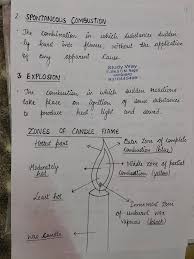 2. SPONTANEOUS COMBUSTION
• The combination in which substance sudden
ly burst into flames, without the application
of any apparent cause.
Study Vray
3. EXPLOSION
• The combustion in which sudden reactions
take place on ignition of some substance
to produce heat, light and sound.
ZONES OF CANDLE FLAME
Hottest part
Outer zone of complete
combustion (blue)
Moderately
hot
Middle zone of partial
combustion (yellow)
Least hot
Innermost zone
of unburnt wax
vapours (black)
Wax Candle